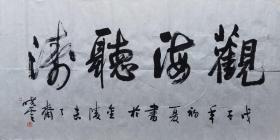 觀海聽濤
戊子年初夏書於金陵